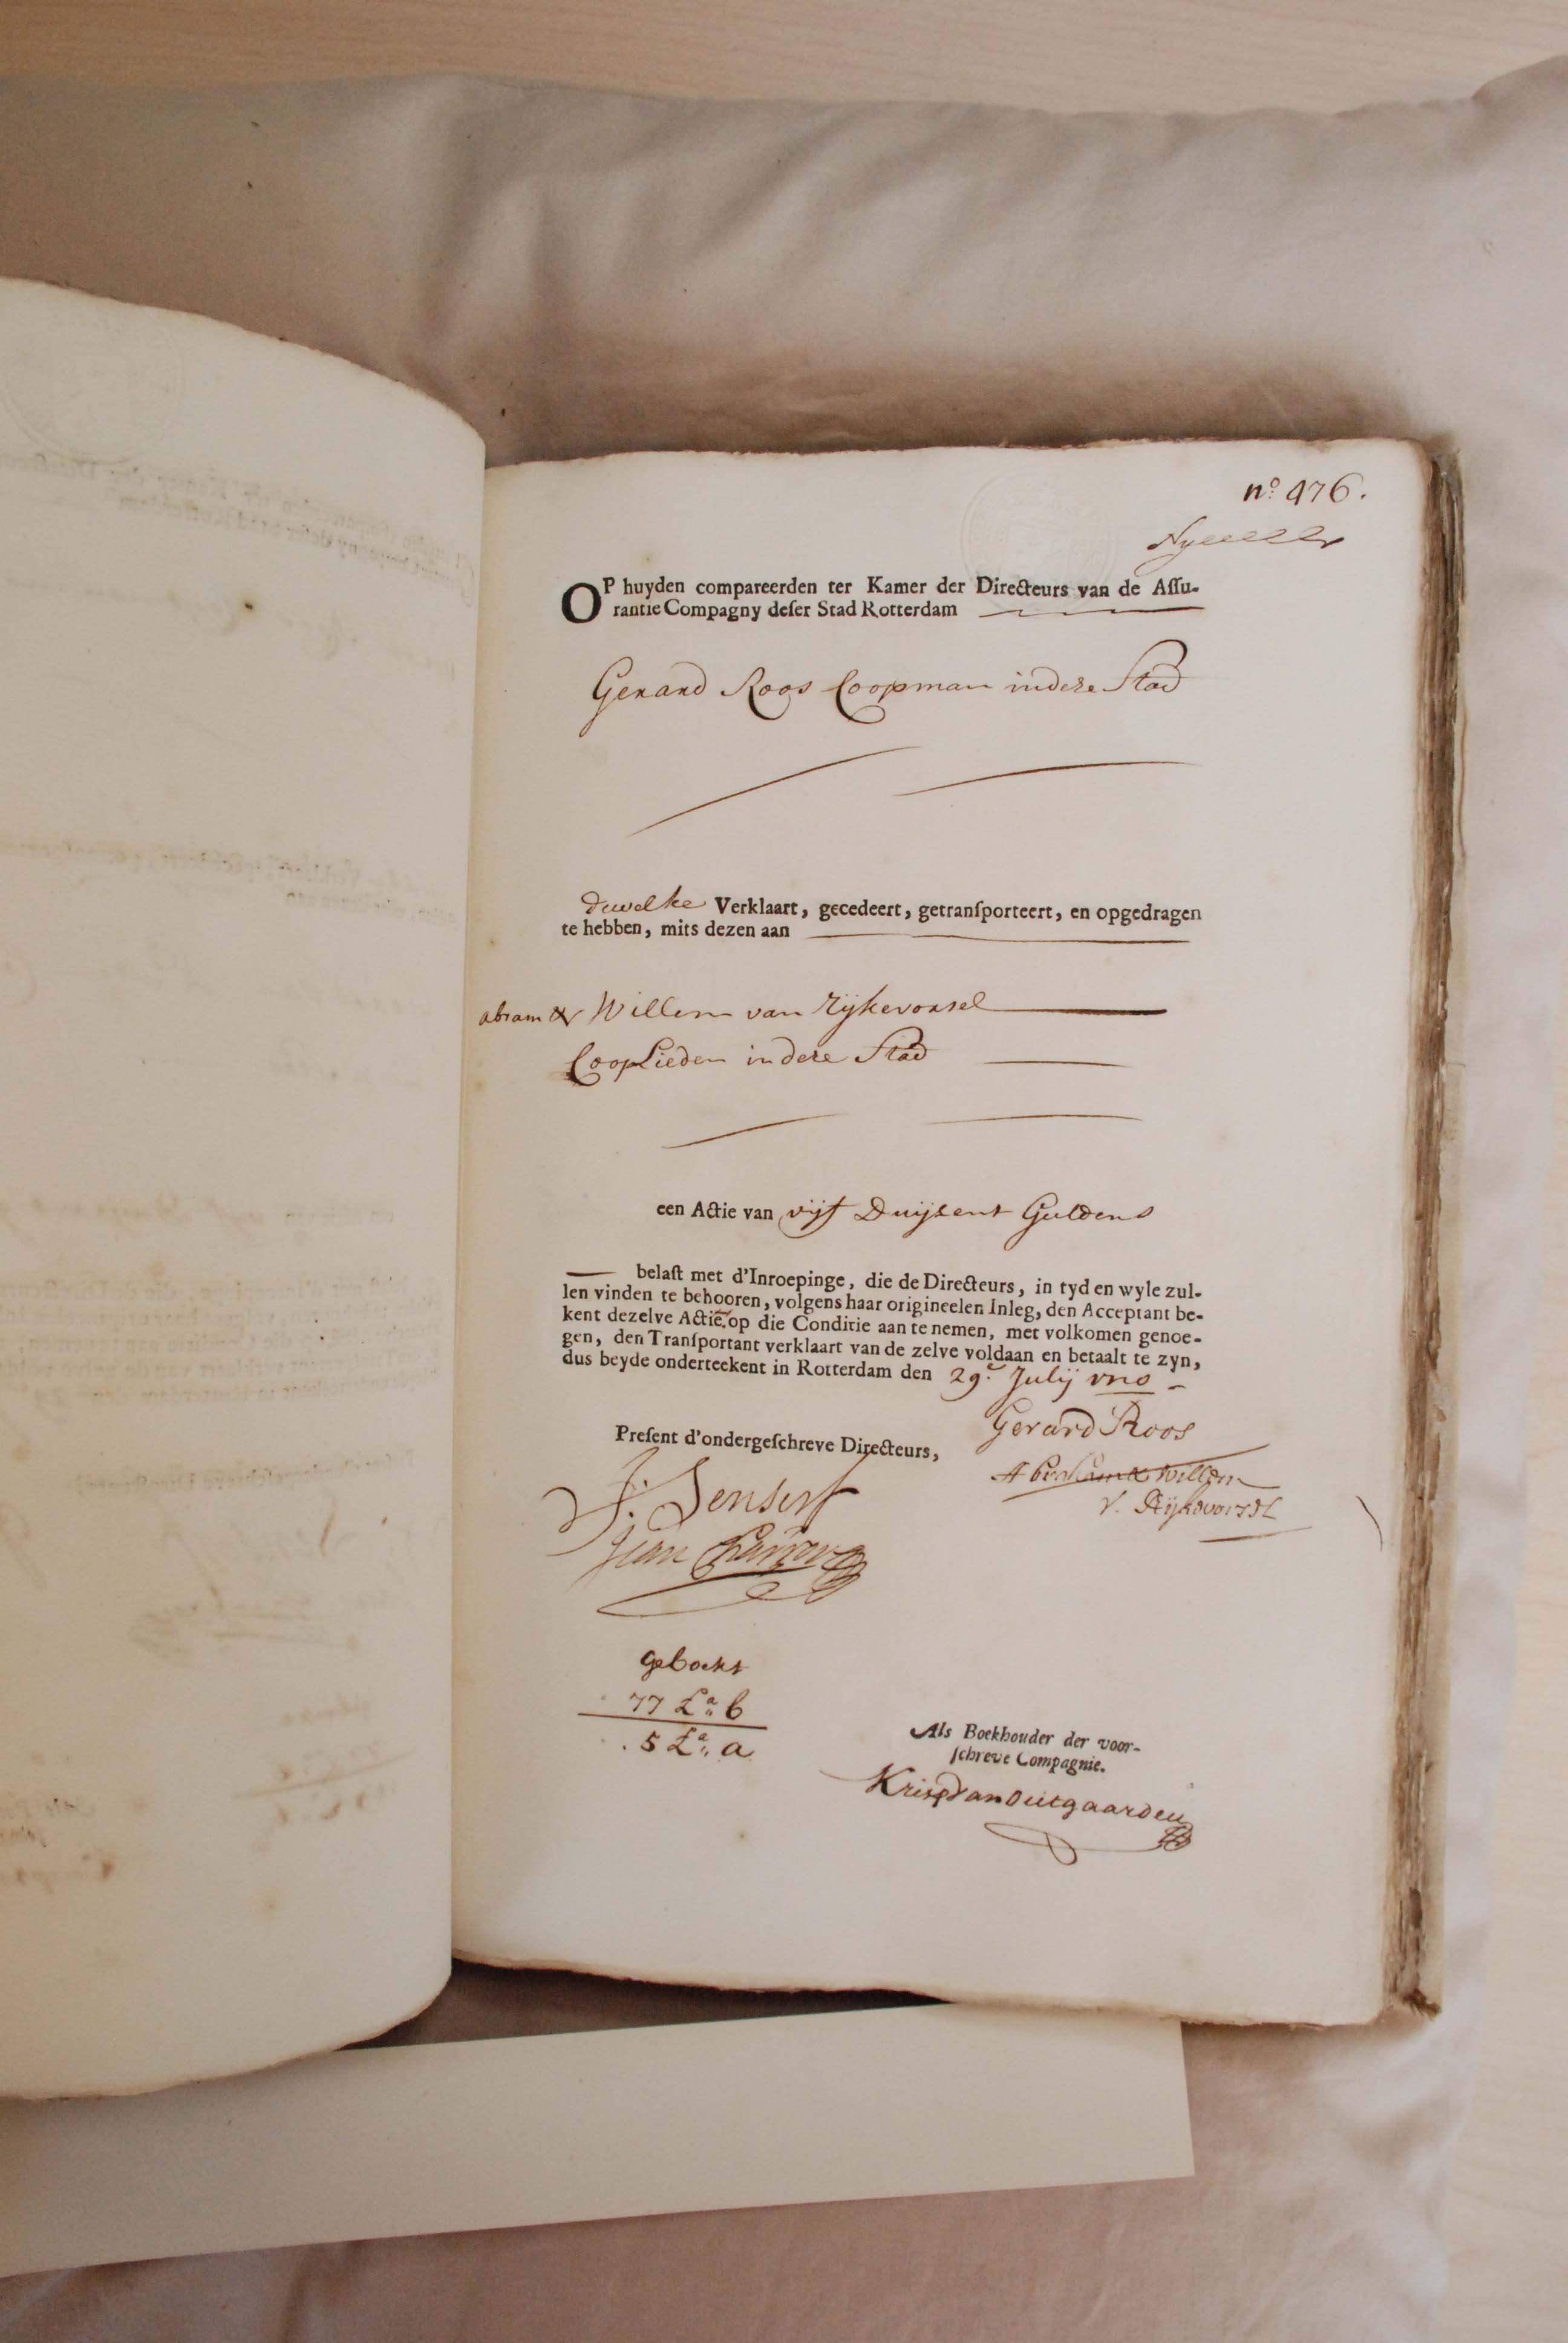 nº 476.
OP huyden compareerden ter Kamer der Directeurs van de Aſſu-
rantie Compagny deſer Stad Rotterdam
Gerard Roos Coopman in dese Stad
duwelke Verklaart, gecedeert, getranſporteert, en opgedragen
te hebben, mits dezen aan
abram & Willem van Rijkevorsel
CoopLieden in dese Stad
een Actie van vijf Duijsent Guldens
belaſt met d'Inroepinge, die de Directeurs, in tyd en wyle zul-
len vinden te behooren, volgens haar origineelen Inleg, den Acceptant be-
kent dezelve Actie op die Conditie aan te nemen, met volkomen genoe-
gen, den Tranſportant verklaart van de zelve voldaan en betaalt te zyn,
dus beyde onderteekent in Rotterdam den 29.e Julij
Gerard Roos
Preſent d'ondergeſchreve Directeurs,
Abraham & Willem
v. Rijkevorsel
J. Senserf
Jean
geboekt
77 La b
5 La a
Als Boekhouder der voor-
ſchreve Compagnie.
Kris van Outgaarden